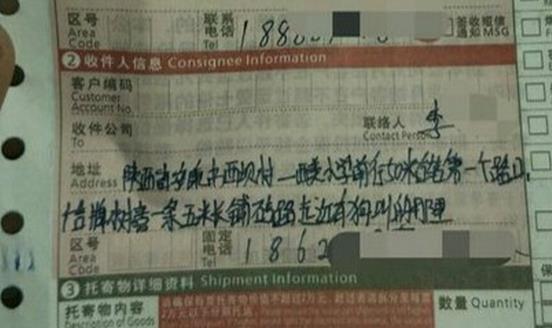 区号 联系 签收短信
Area 电话 通知MSG
Code Tel 188
2 收件人信息 Consignee Information
客户编码
Customer
Account No.
收件公司 联络人 李
To Contact Person
地址 陕西省安康市西坝村一西美小学前行50米右转第一个路口,
Address
广告牌对旁一条五米长铺石路左边有狗叫的那里
区号 固定
Area 电话 1862
Code Tel
3 托寄物详细资料 Shipment Information
托寄物内容 数量 Quantity
Description of Goods